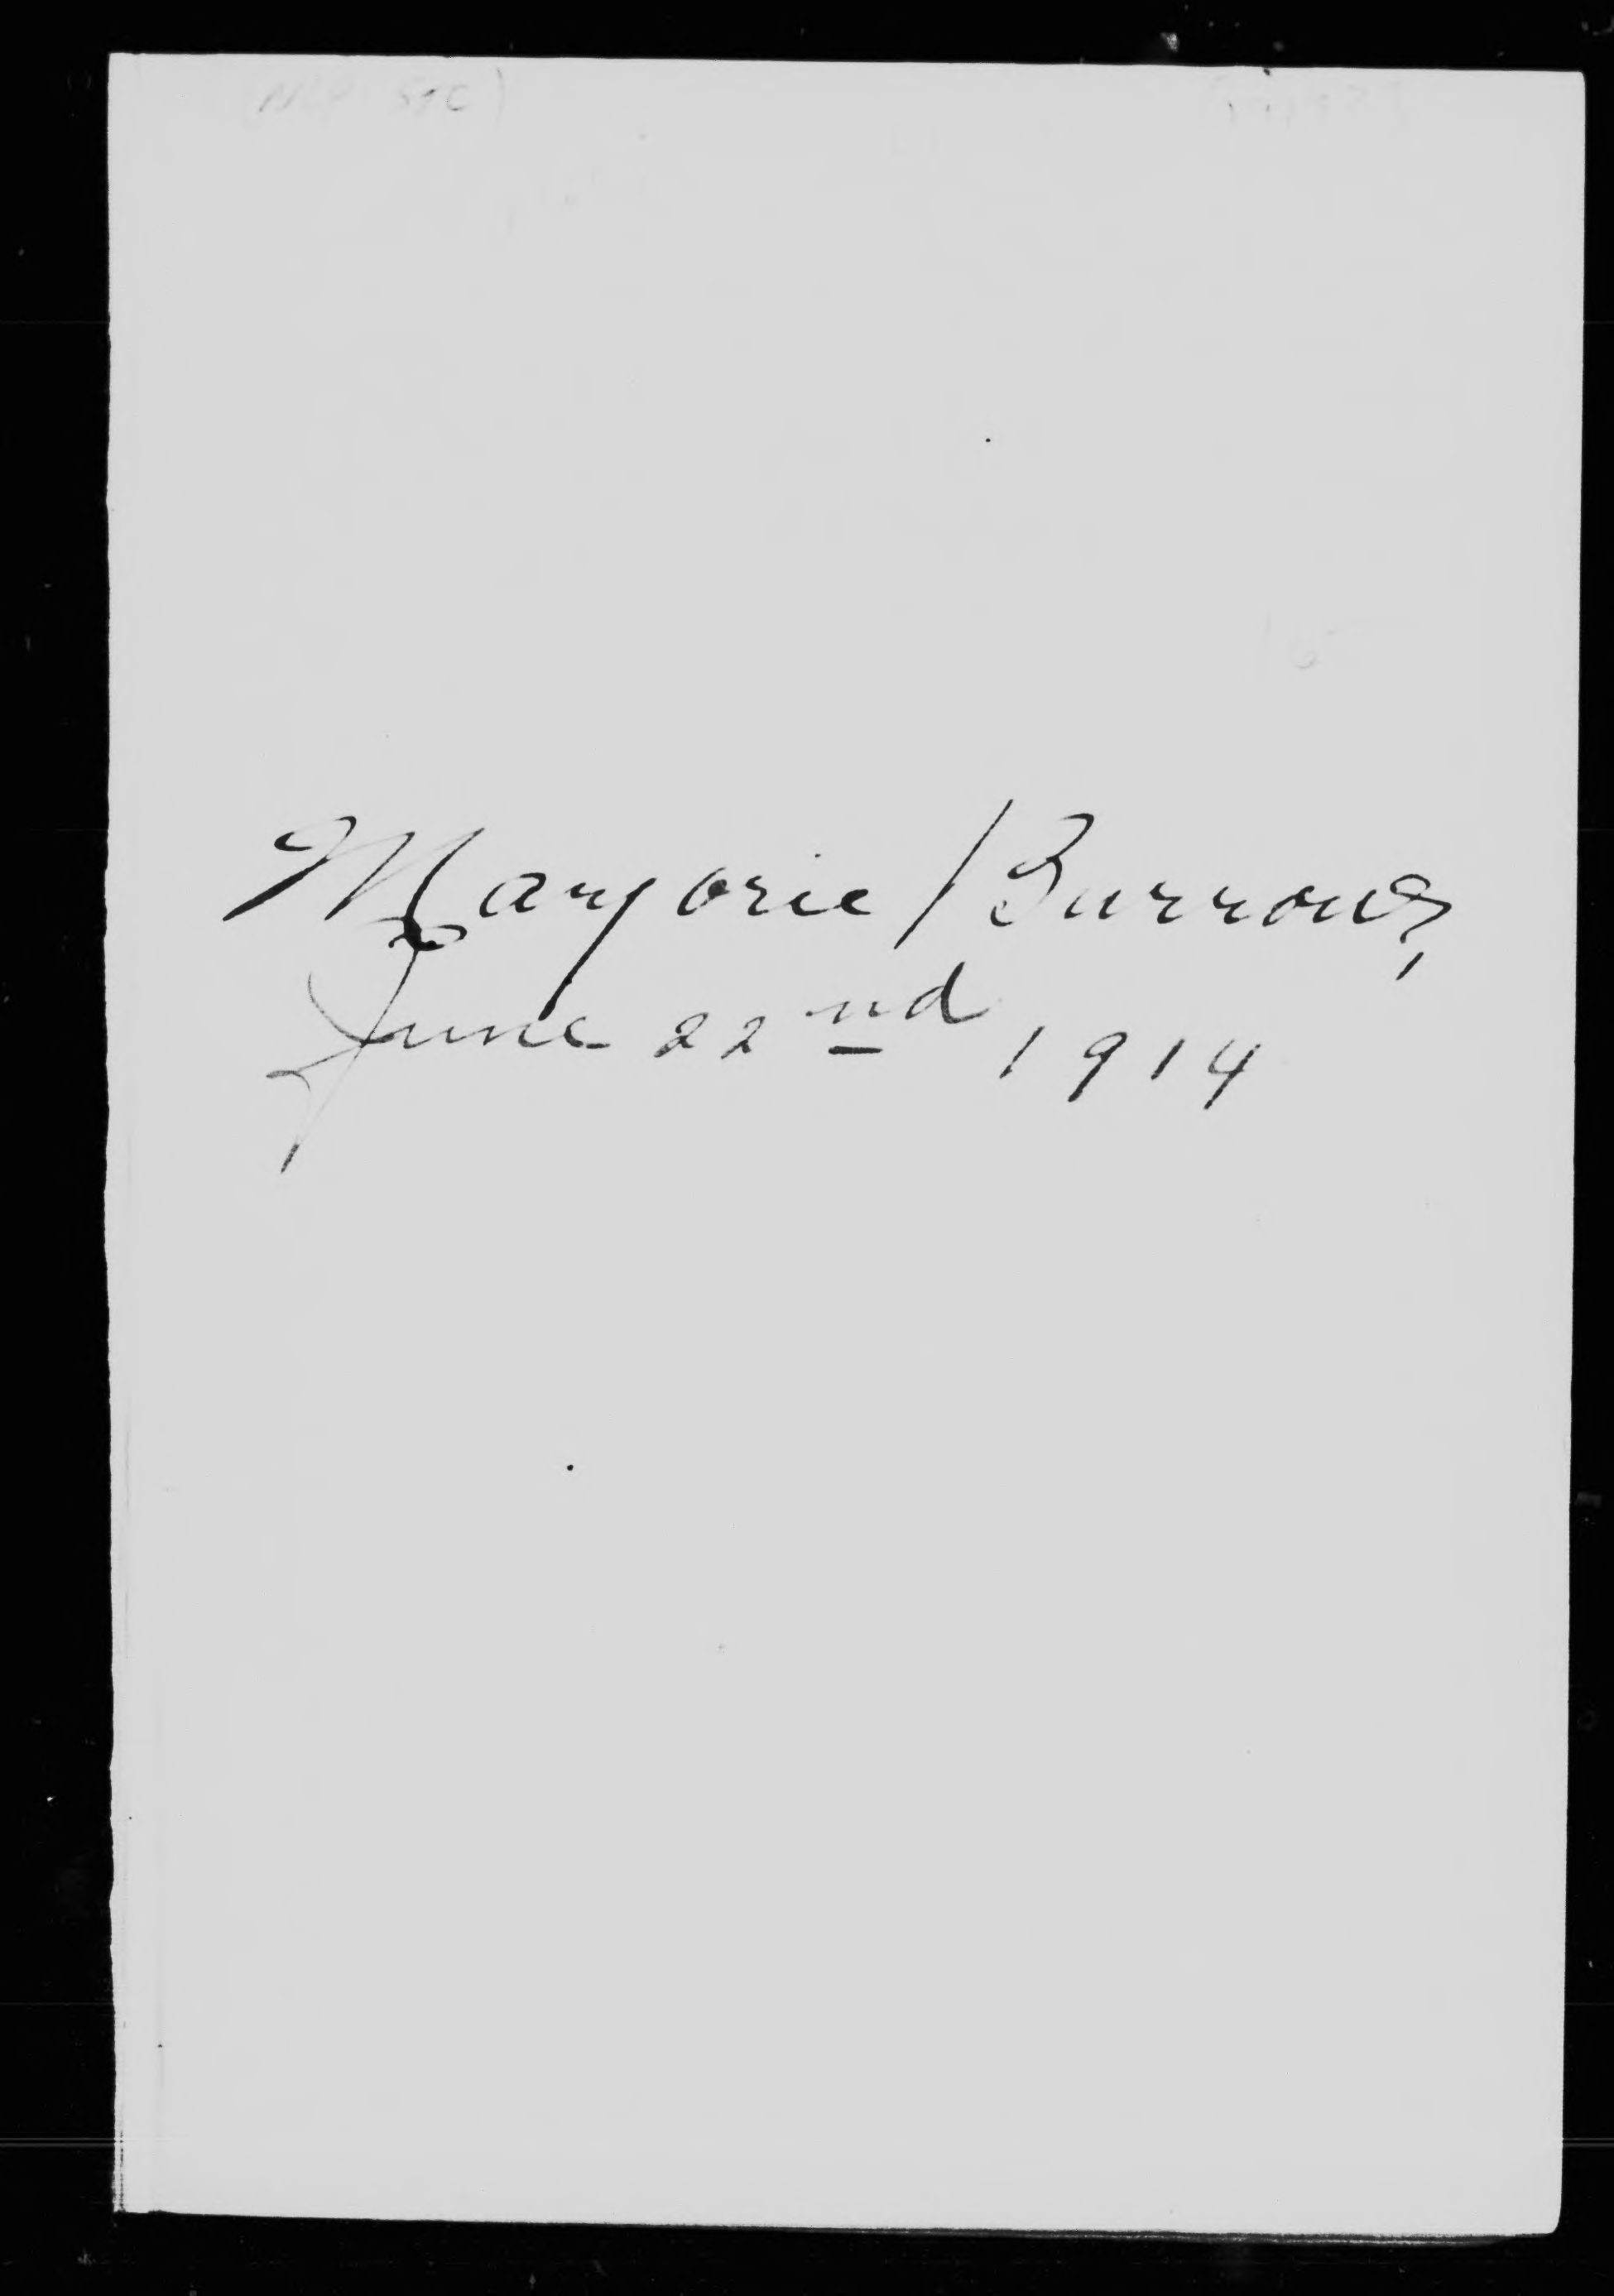 Marjorie Burrows,
June 22nd 1914